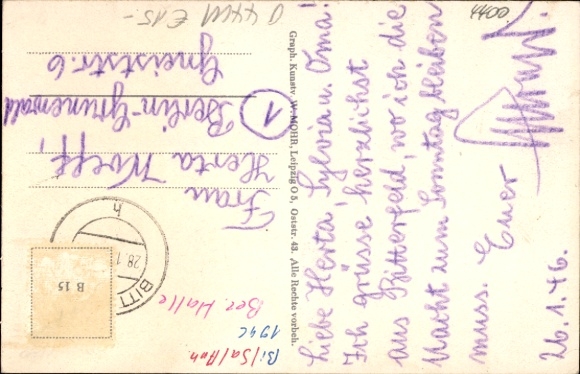 Liebe Herta, Sylvia u. Oma!
Ich grüsse herzlichst
aus Bitterfeld, wo ich die
Nacht zum Sonntag bleiben
muss. Euer
26.1.46.
Graph. Kunstv. W. MOHR, Leipzig O 5, Oststr. 43 Alle Rechte vorbeh.
Frau
Herta Wolff,
① Berlin-Grunewald
Gneiststr. 6
BITT
28.1
h
B 15
Bi/Sa/Anh
1946
Bez. Halle
€ 15.-
4400